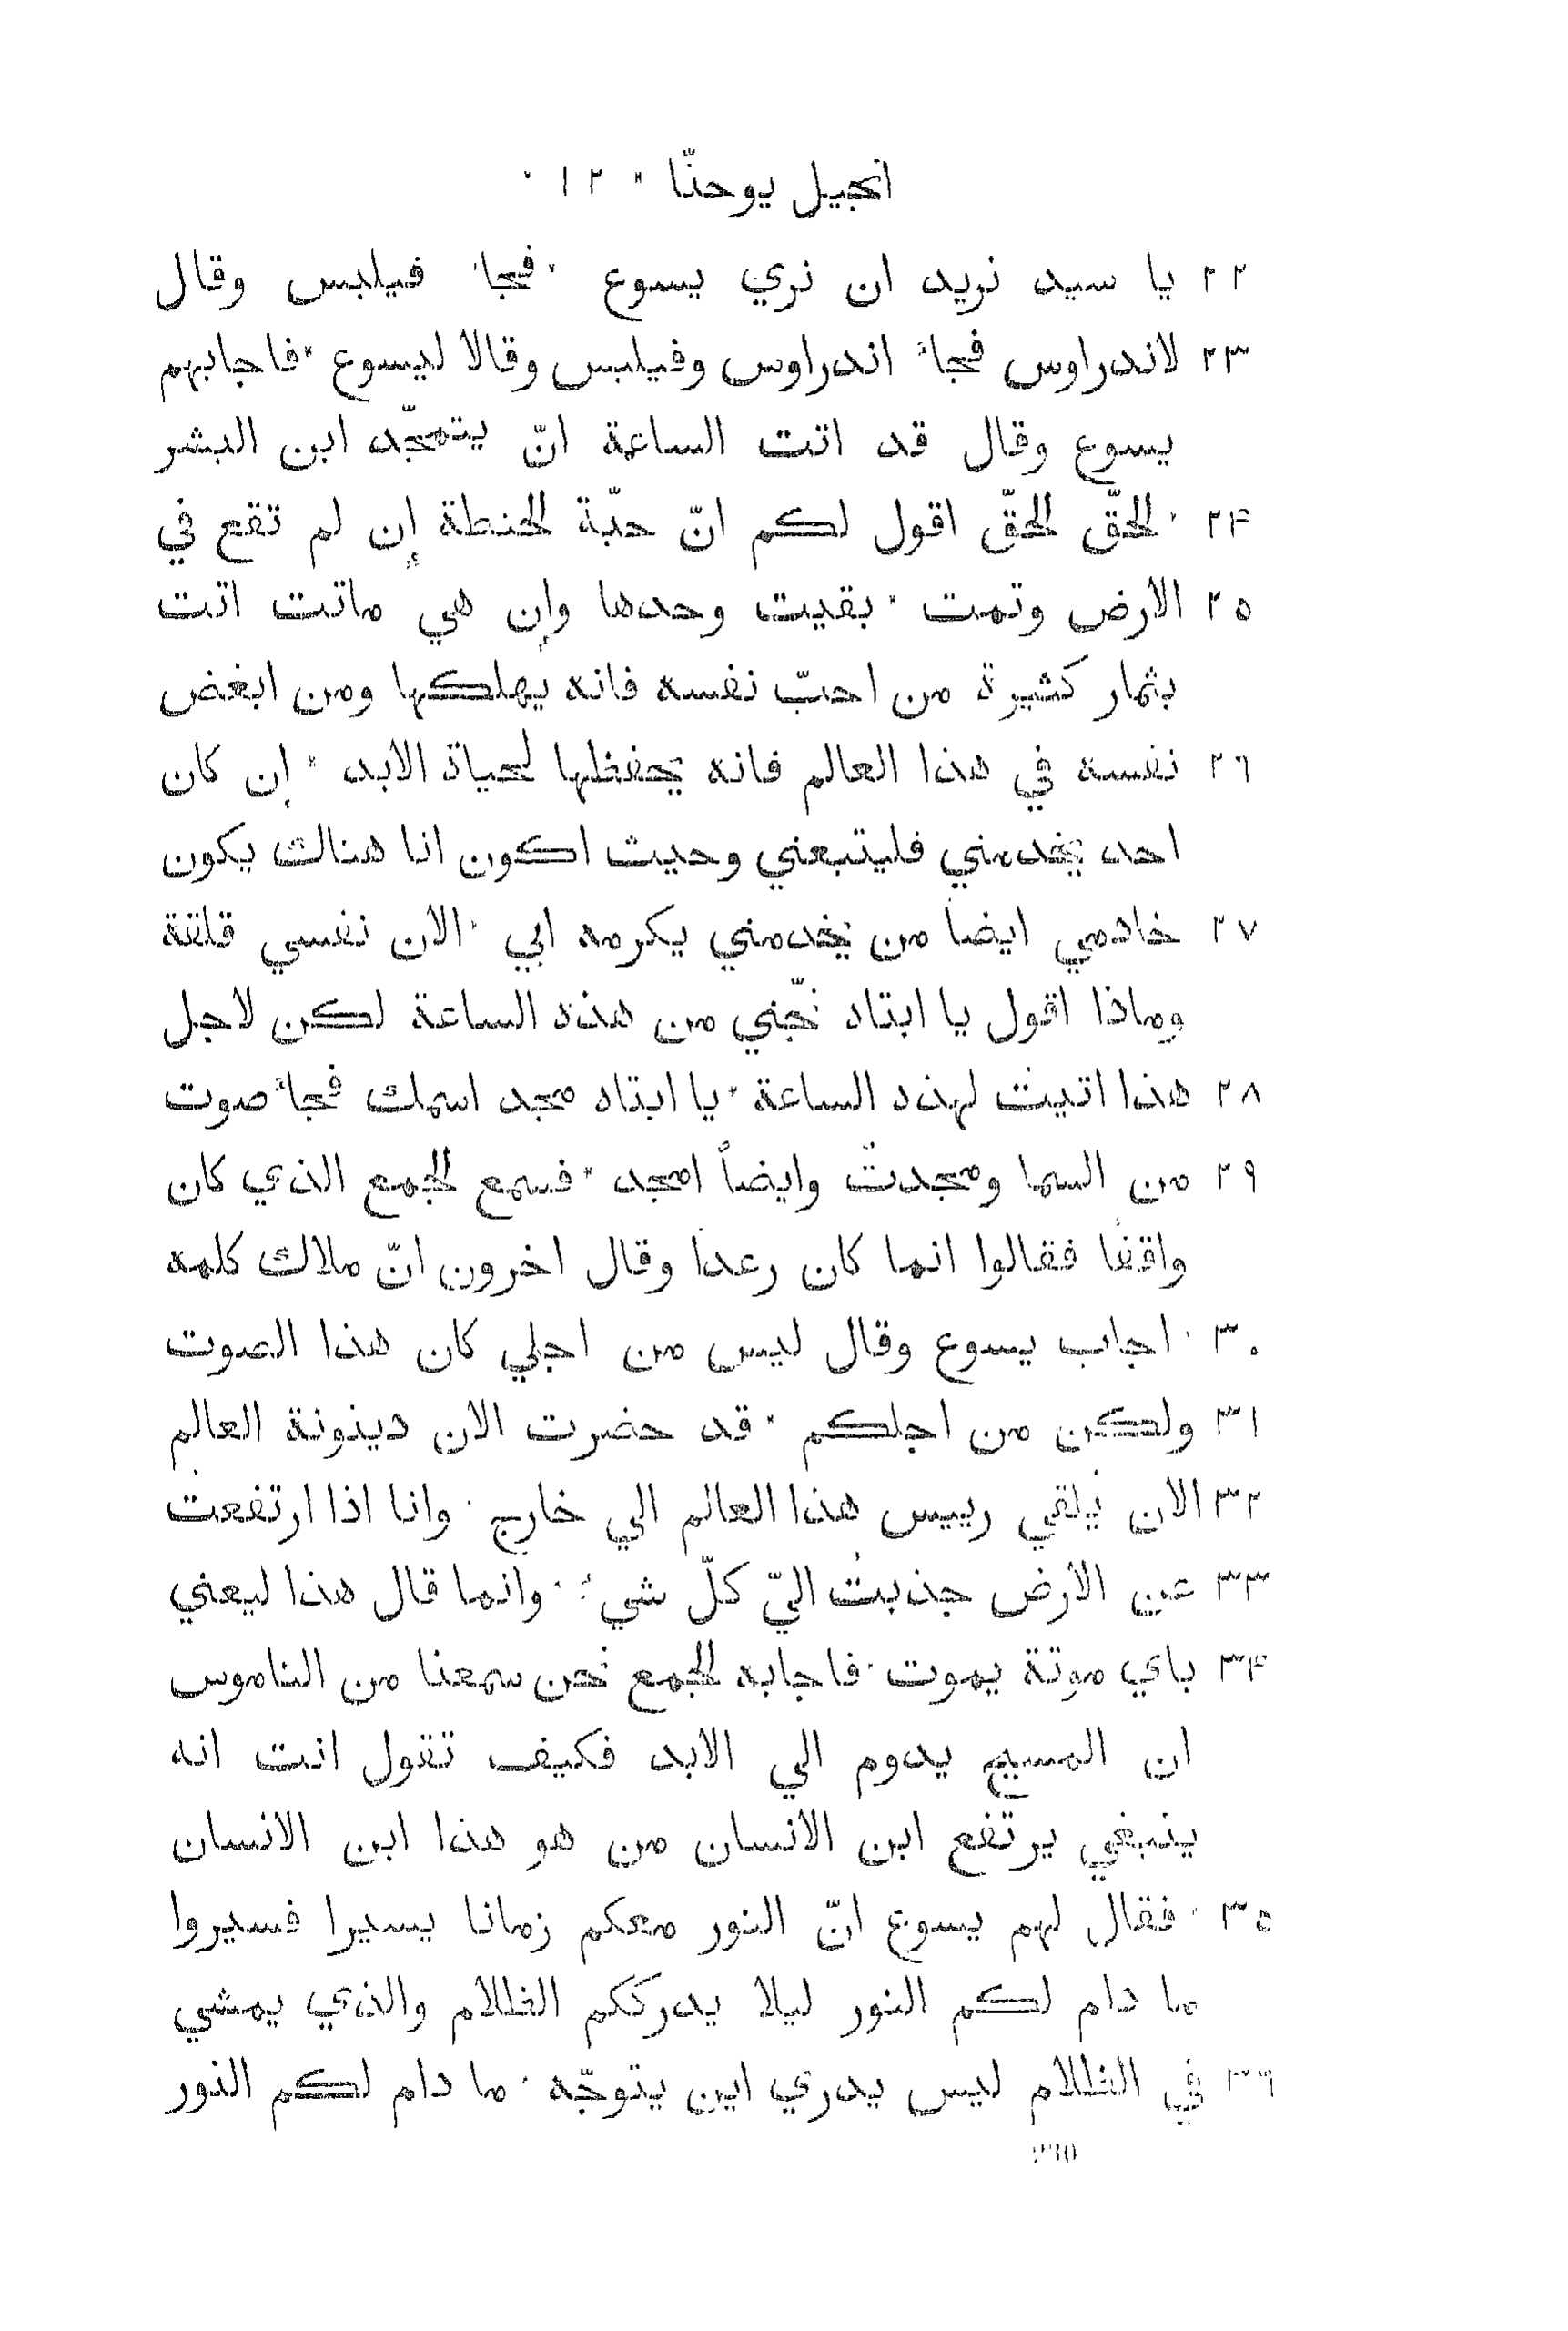 انجيل يوحنّا * ١٢ *
٢٢ يا سيد نريد ان نري يسوع * فجاء فيلبس وقال
٢٣ لاندراوس فجاء اندراوس وفيلبس وقالا ليسوع * فاجابهم
يسوع وقال قد اتت الساعة انّ يتمجّد ابن البشر
٢۴ * الحقّ الحقّ اقول لكم انّ حبّة الحنطة إن لم تقع في
٢٥ الارض وتمت * بقيت وحدها وإن هي ماتت اتت
بثمار كثيرة من احبّ نفسه فانه يهلكها ومن ابغض
٢٦ نفسه في هذا العالم فانه يحفظها لحياة الابد * إن كان
احد يخدمني فليتبعني وحيث اكون انا هناك يكون
٢٧ خادمي ايضا من يخدمني يكرمه ابي * الان نفسي قلقة
وماذا اقول يا ابتاه نجّني من هذه الساعة لكن لاجل
٢٨ هذا اتيت لهذه الساعة * يا ابتاه مجد اسمك فجاء صوت
٢٩ من السما ومجدتُ وايضاً امجد * فسمع الجمع الذي كان
واقفا فقالوا انما كان رعدا وقال اخرون انّ ملاك كلمه
٣٠ * اجاب يسوع وقال ليس من اجلي كان هذا الصوت
٣١ ولكن من اجلكم * قد حضرت الان دينونة العالم
٣٢ الان يُلقي رييس هذا العالم الي خارج * وانا اذا ارتفعتُ
٣٣ عن الارض جذبتُ اليّ كلّ شيء * وانما قال هذا ليعني
٣۴ باي موتة يموت * فاجابه الجمع نحن سمعنا من الناموس
ان المسيح يدوم الي الابد فكيف تقول انت انه
ينبغي يرتفع ابن الانسان من هو هذا ابن الانسان
٣٥ * فقال لهم يسوع انّ النور معكم زمانا يسيرا فسيروا
ما دام لكم النور ليلا يدرككم الظلام والذي يمشي
٣٦ في الظلام ليس يدري اين يتوجّه * ما دام لكم النور
230